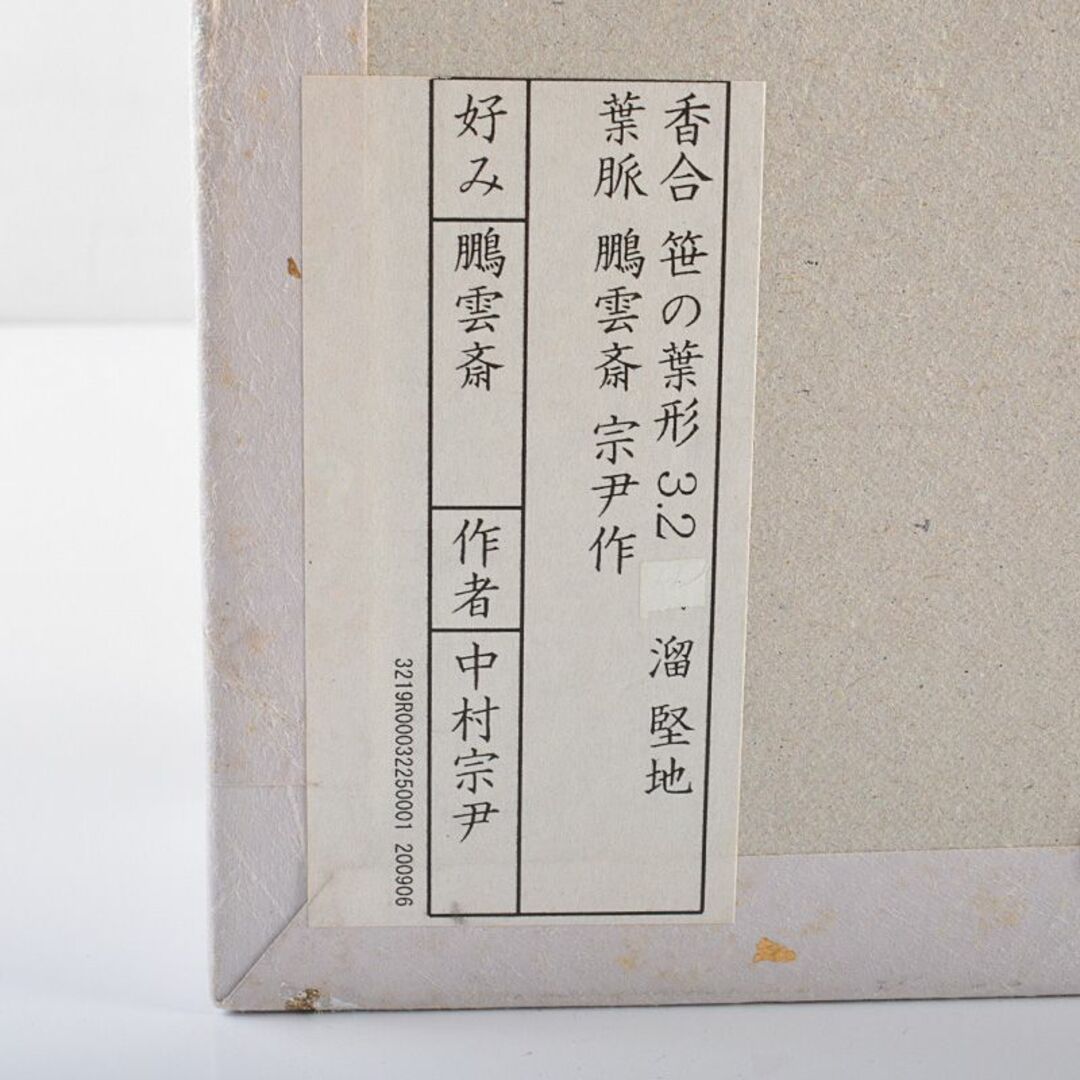 香合 笹の葉形 3.2 溜 堅地
葉脈 鵬雲斎 宗尹作
好み 鵬雲斎 作者 中村宗尹
3219R00032250001 200906